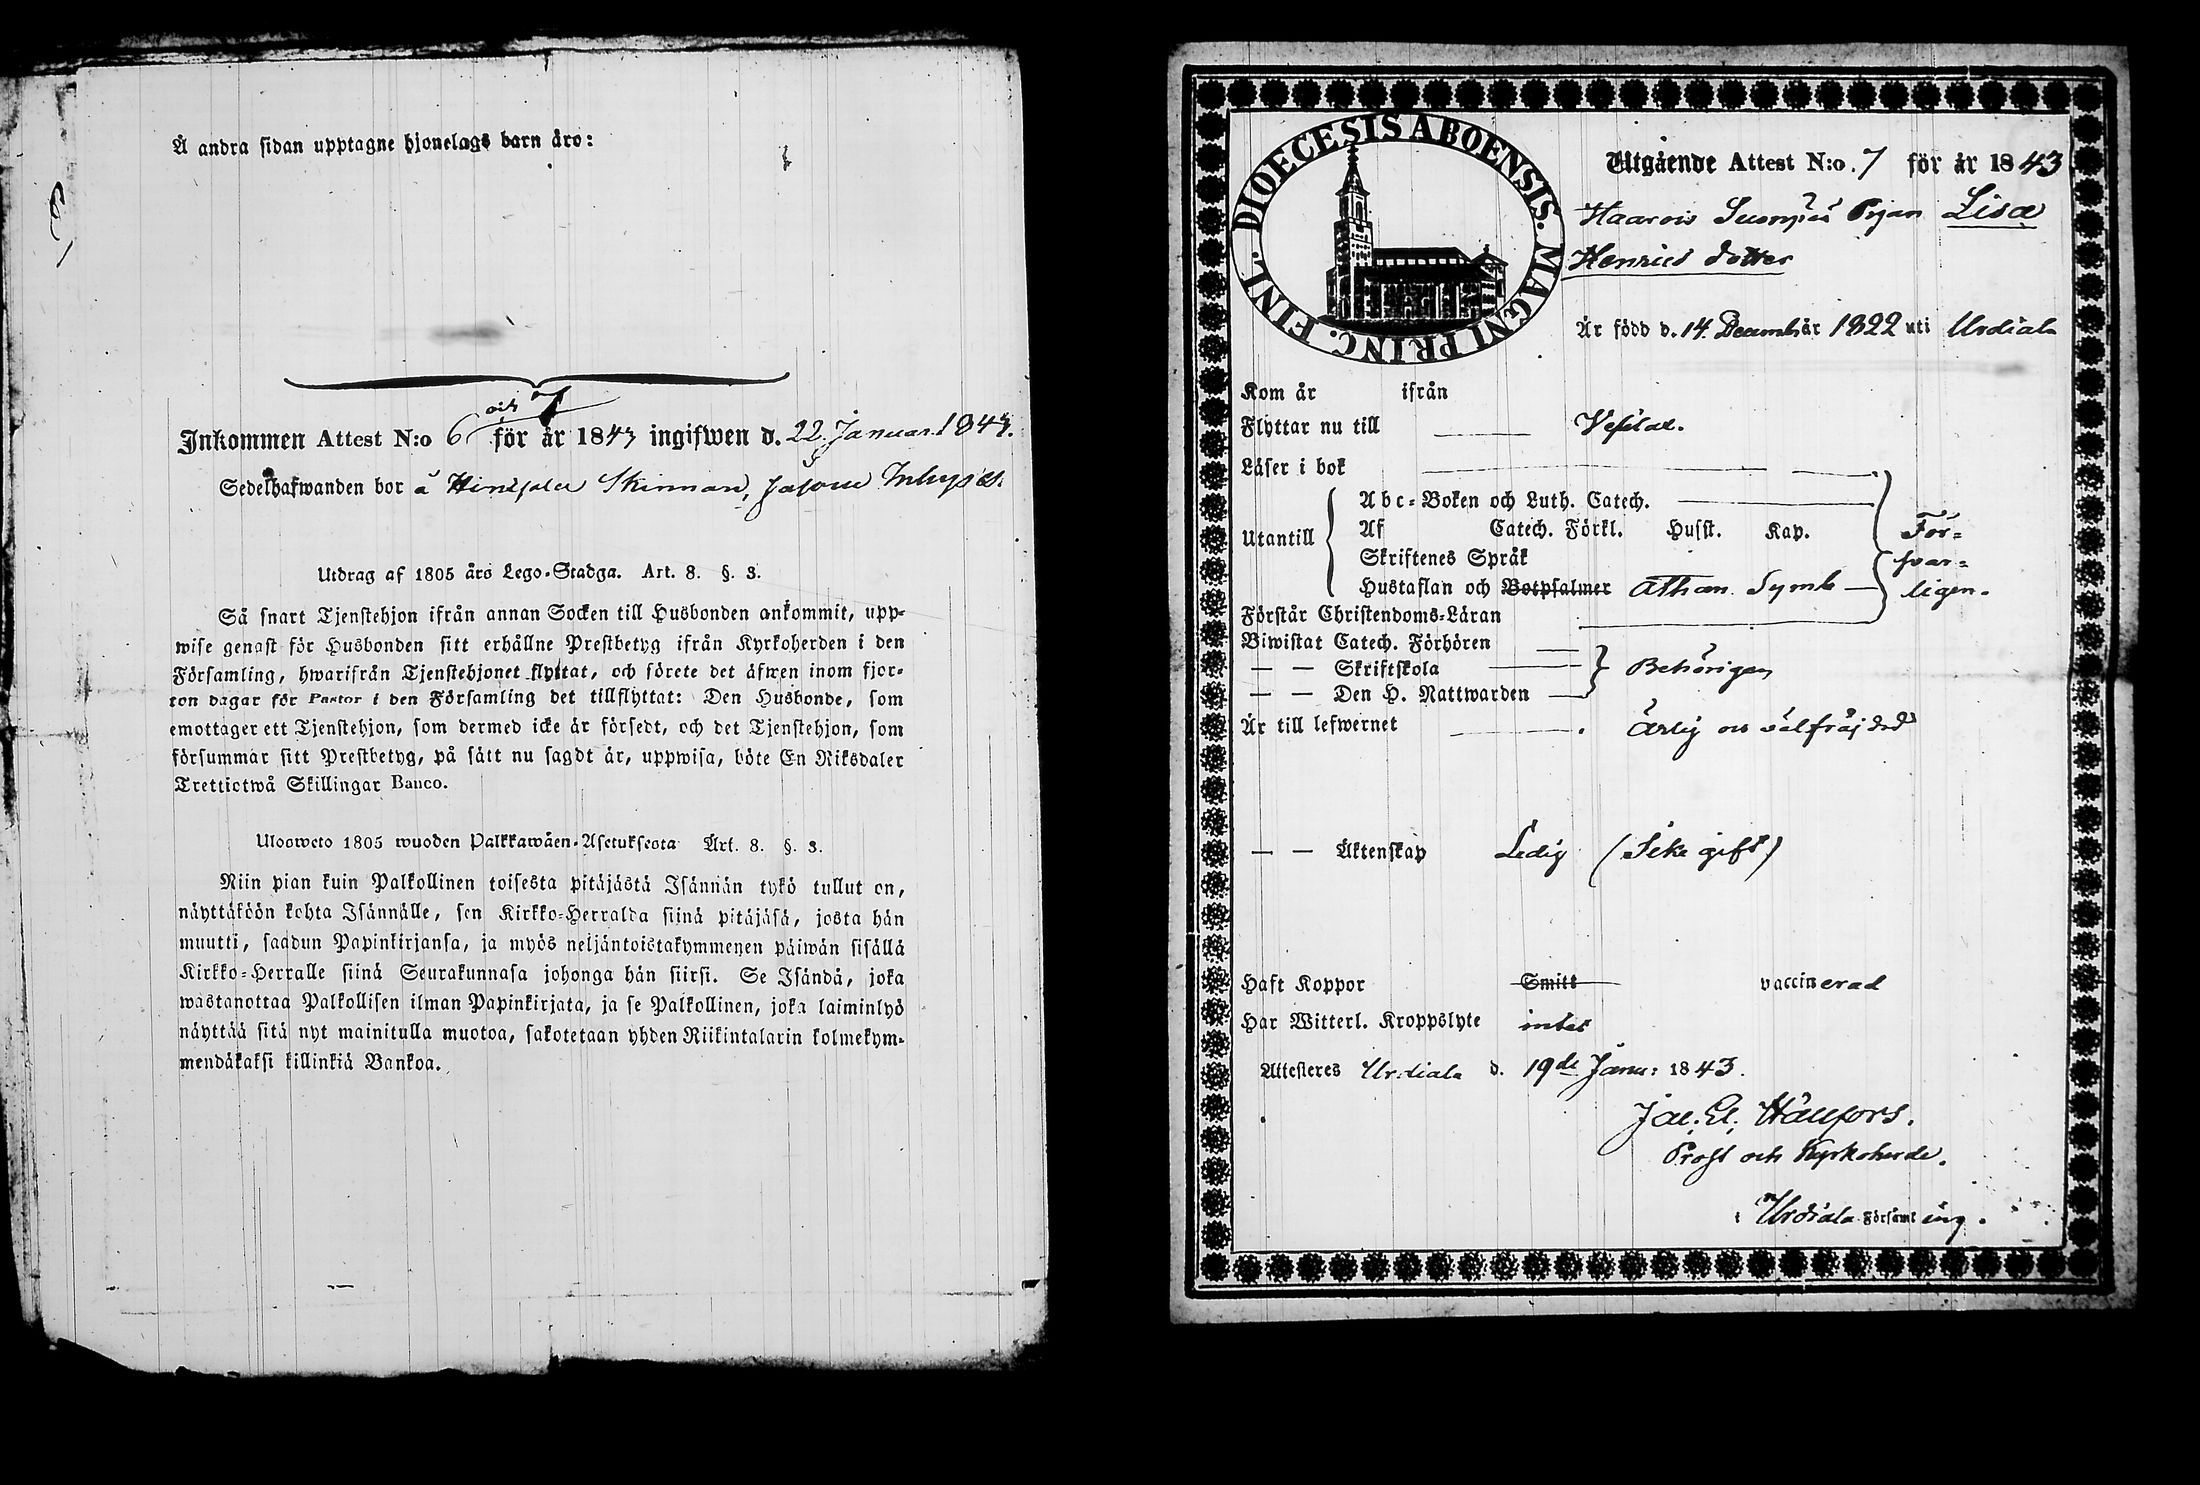 Å andra sidan upptagne hjonelags barn äro:
och 7
Inkommen Attest N:o 6 för år 1843 ingifwen d. 22 Januar. 1843.
Sedelhafwanden bor å Skinnari,
Utdrag af 1805 års Lego-Stadga. Art. 8. §. 3.
Så snart Tjenstehjon ifrån annan Socken till Husbonden ankommit, upp-
wise genast för Husbonden sitt erhållne Prestbetyg ifrån Kyrkoherden i den
Församling, hwarifrån Tjenstehjonet flyttat, och förete det äfwen inom fjor-
ton dagar för Pastor i den Församling det tillflyttat: Den Husbonde, som
emottager ett Tjenstehjon, som dermed icke är försedt, och det Tjenstehjon, som
försummar sitt Prestbetyg, på sätt nu sagdt är, uppwisa, böte En Riksdaler
Trettiotwå Skillingar Banco.
Ulosweto 1805 wuoden Palkkawäen-Asetuksesta Art. 8. §. 3.
Niin pian kuin Palkollinen toisesta pitäjästä Isännän tykö tullut on,
näyttäköön kohta Isännälle, sen Kirkko-Herralda siinä pitäjäsä, josta hän
muutti, saadun Papinkirjansa, ja myös neljäntoistakymmenen päiwän sisällä
Kirkko-Herralle siinä Seurakunnasa johonga hän siirsi. Se Isändä, joka
wastanottaa Palkollisen ilman Papinkirjata, ja se Palkollinen, joka laiminlyö
näyttää sitä nyt mainitulla muotoa, sakotetaan yhden Riikintalarin kolmekym-
mendäkaksi killinkiä Bankoa.
DIOECESIS ABOENSIS. MAGNI PRINC. FINL.
Utgående Attest N:o. 7 för år 1843
Haarois Pigan Lisa
Henrics dotter
Är född d. 14 Decemb. år 1822 uti Urdiala
Kom år ifrån
Flyttar nu till Vesilax.
Läser i bok
Abc-Boken och Luth. Catech.
Utantill Af Catech. Förkl. Husst. Kap. För-
Skriftenes Språk svar-
Hustaflan och Botpsalmer Athan. Symb ligen.
Förstår Christendoms-Läran
Biwistat Catech. Förhören
— — Skriftskola Behörigen
— — Den H. Nattwarden
Är till lefwernet ärlig och välfräjdad
— — Äktenskap Ledig (Icke gift)
Haft Koppor Smitt vaccinerad
Har Witterl. Kroppslyte intet
Attesteres Urdiala d. 19de Janu: 1843.
Prost och Kyrkoherde.
i Urdiala Församling.